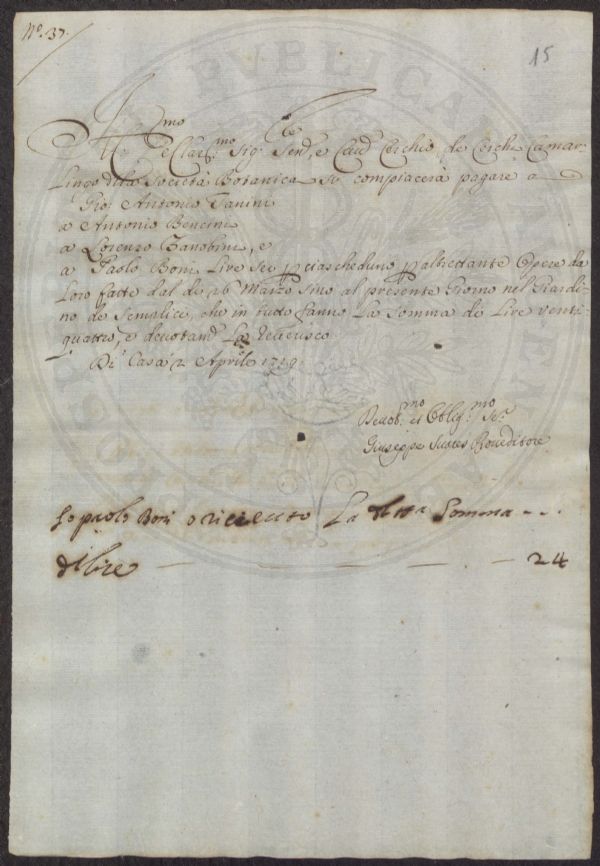 No. 37.
15
Ill.mo
e Clar.mo Sig.e Sen.e, e Cau.e Cerchio de Cerchi Camar-
lingo della Società Botanica si compiacerà pagare a
Gio: Antonio Fanini
a Antonio Bencini
a Lorenzo Zanobini, e
a Paolo Boni Lire Sei p ciascheduno p altrettante Opere da
Loro fatte dal dì 26 Marzo sino al presente Giorno nel Giardi-
no de Semplici, che in tutto fanno La Somma di Lire venti-
quattro, e devotam.e La reverisco
Di Casa 2 Aprile 1719
Devot.mo et Oblig.mo Se.e
Giuseppe Suares Proveditore
Io paolo Boni o riceuto La detta Somma - - .
di lire — — — — 24